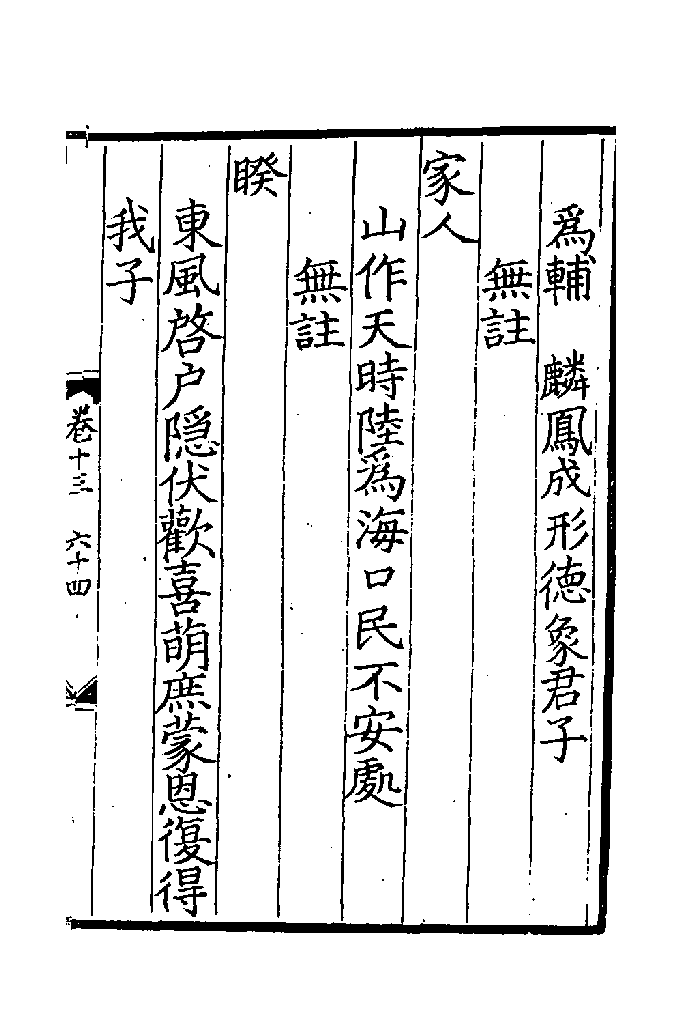 為輔　麟鳳成形德象君子
無註
家人
山作天時陸為海口民不安處
無註
睽
東風啓户隠伏歡喜萌庶蒙恩復得
我子
卷十三　六十四